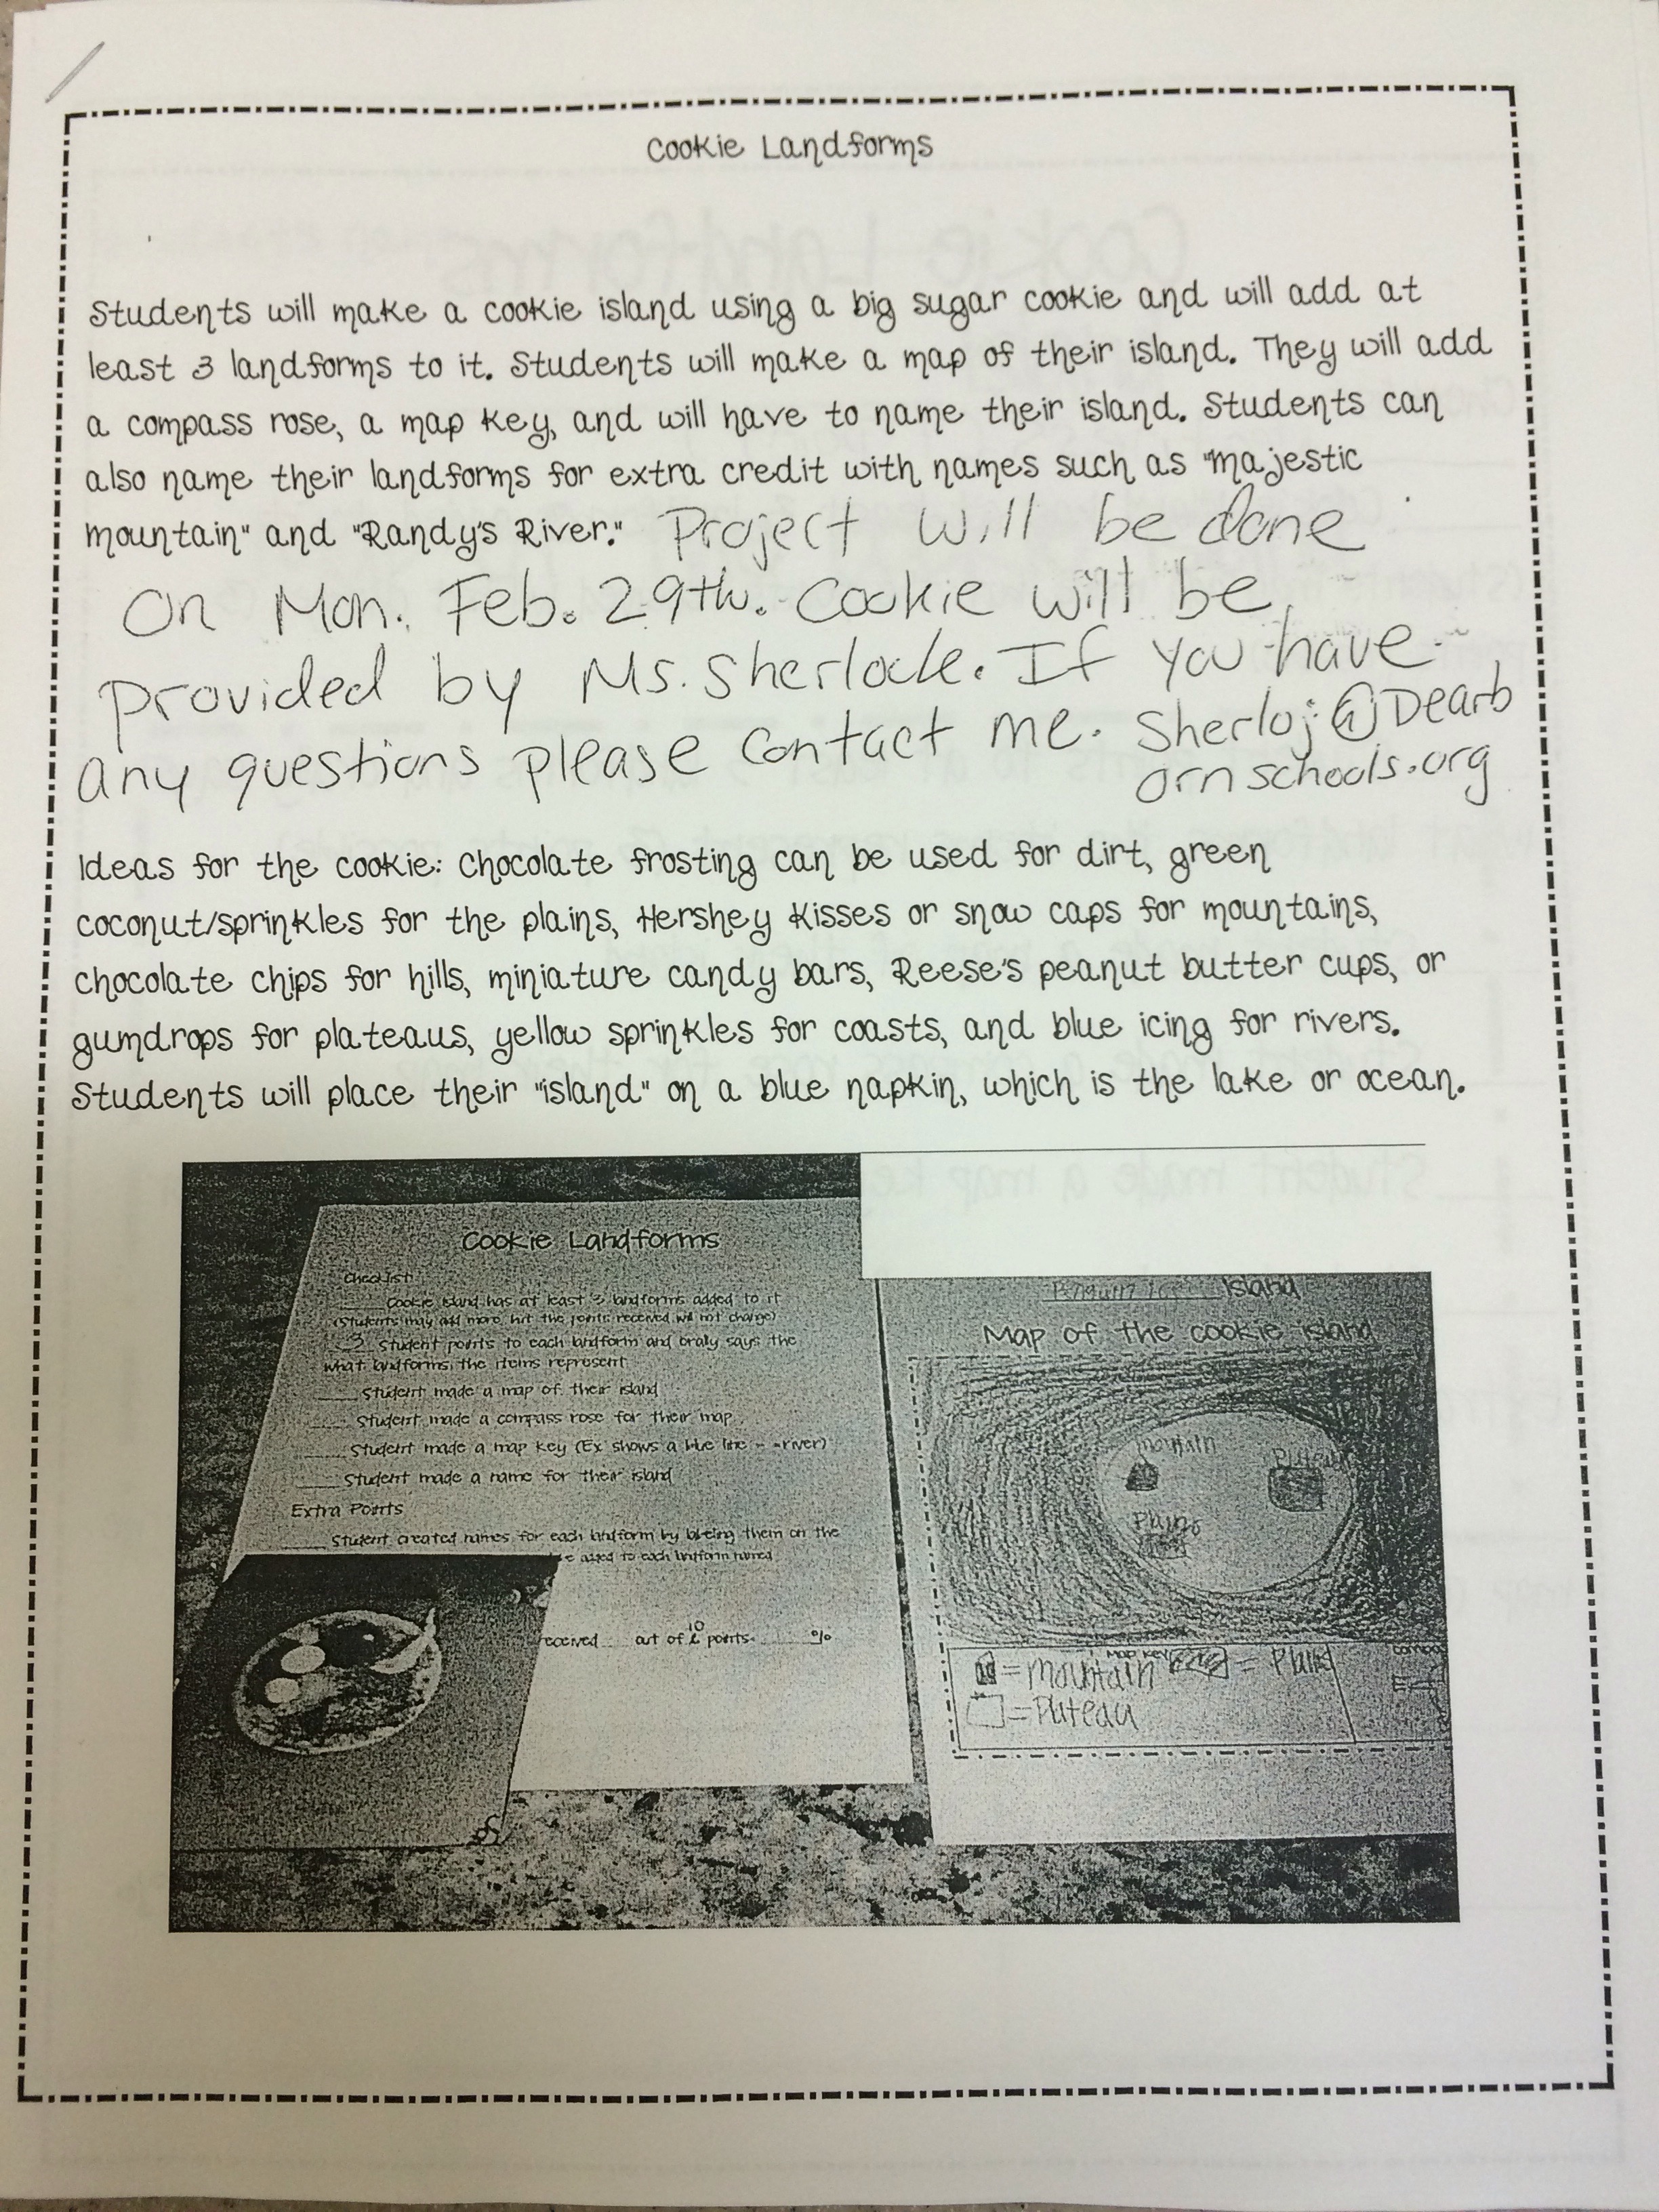 Cookie Landforms
Students will make a cookie island using a big sugar cookie and will add at
least 3 landforms to it. Students will make a map of their island. They will add
a compass rose, a map key, and will have to name their island. Students can
also name their landforms for extra credit with names such as "majestic
mountain" and "Randy's River." Project will be done
on Mon. Feb. 29th. Cookie will be
provided by Ms. Sherlock. If you have
any questions please contact me. Sherloj@Dearb
ornschools.org
Ideas for the cookie: Chocolate frosting can be used for dirt, green
coconut/sprinkles for the plains, Hershey Kisses or snow caps for mountains,
chocolate chips for hills, miniature candy bars, Reese's peanut butter cups, or
gumdrops for plateaus, yellow sprinkles for coasts, and blue icing for rivers.
Students will place their "island" on a blue napkin, which is the lake or ocean.
Cookie Landforms
Checklist:
Cookie island has at least 3 landforms added to it
(Students may add more, but the points received will not change)
3 Student points to each landform and orally says the
what landforms the items represent
Student made a map of their island
Student made a compass rose for their map
Student made a map key (Ex shows a blue line - =river)
Student made a name for their island
Extra Points
Student created names for each landform by labeling them on the
added to each landform named
received out of 10 points. %
Island
Map of the cookie island
mountain
Plateau
Plains
Map Key
= mountain = Plains
= Plateau